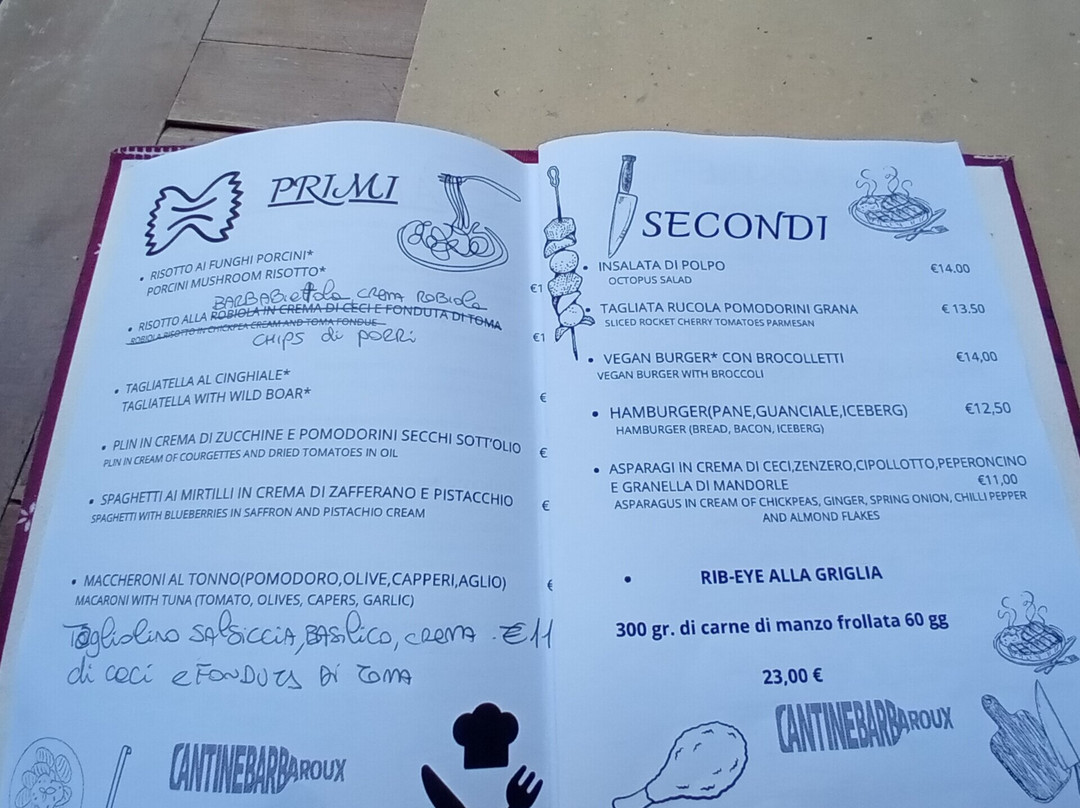 PRIMI
• RISOTTO AI FUNGHI PORCINI*
PORCINI MUSHROOM RISOTTO*
€1
BARBABIETOLA CREMA ROBIOLA
• RISOTTO ALLA ROBIOLA IN CREMA DI CECI E FONDUTA DI TOMA
ROBIOLA RISOTTO IN CHICKPEA CREAM AND TOMA FONDUE
€1
CHIPS di PORRI
• TAGLIATELLA AL CINGHIALE*
TAGLIATELLA WITH WILD BOAR*
€
• PLIN IN CREMA DI ZUCCHINE E POMODORINI SECCHI SOTT'OLIO
PLIN IN CREAM OF COURGETTES AND DRIED TOMATOES IN OIL
€
• SPAGHETTI AI MIRTILLI IN CREMA DI ZAFFERANO E PISTACCHIO
SPAGHETTI WITH BLUEBERRIES IN SAFFRON AND PISTACHIO CREAM
€
• MACCHERONI AL TONNO(POMODORO,OLIVE,CAPPERI,AGLIO)
MACARONI WITH TUNA (TOMATO, OLIVES, CAPERS, GARLIC)
€
Tagliolino SALSICCIA, BASILICO, CREMA . €11
di ceci e FONDUTA DI TOMA
CANTINEBARBAROUX
SECONDI
• INSALATA DI POLPO €14.00
OCTOPUS SALAD
• TAGLIATA RUCOLA POMODORINI GRANA € 13.50
SLICED ROCKET CHERRY TOMATOES PARMESAN
• VEGAN BURGER* CON BROCOLLETTI €14,00
VEGAN BURGER WITH BROCCOLI
• HAMBURGER(PANE,GUANCIALE,ICEBERG) €12,50
HAMBURGER (BREAD, BACON, ICEBERG)
• ASPARAGI IN CREMA DI CECI,ZENZERO,CIPOLLOTTO,PEPERONCINO
E GRANELLA DI MANDORLE €11,00
ASPARAGUS IN CREAM OF CHICKPEAS, GINGER, SPRING ONION, CHILLI PEPPER
AND ALMOND FLAKES
• RIB-EYE ALLA GRIGLIA
300 gr. di carne di manzo frollata 60 gg
23,00 €
CANTINEBARBAROUX